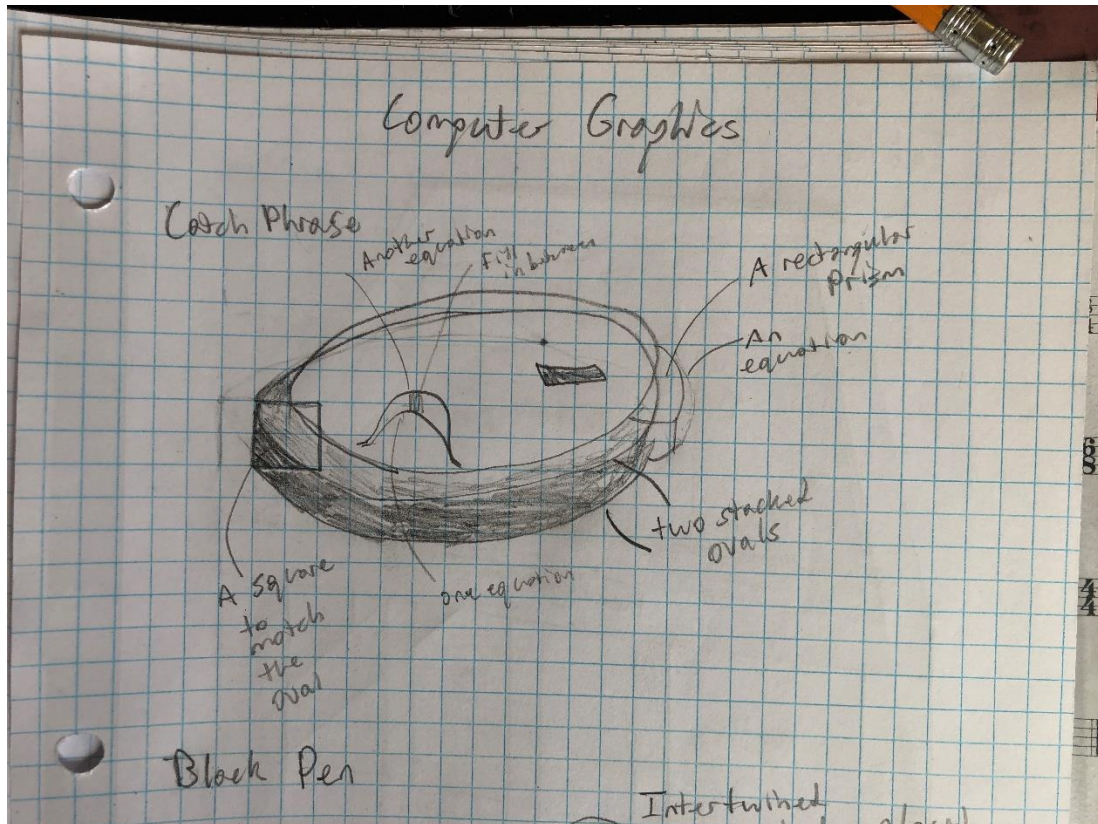 Computer Graphics
Catch Phrase
Another
equation
Fill
in between
A rectangular
Prism
An
equation
two stacked
ovals
one equation
A square
to
match
the
oval
Black Pen
Intertwined
placed
4
4